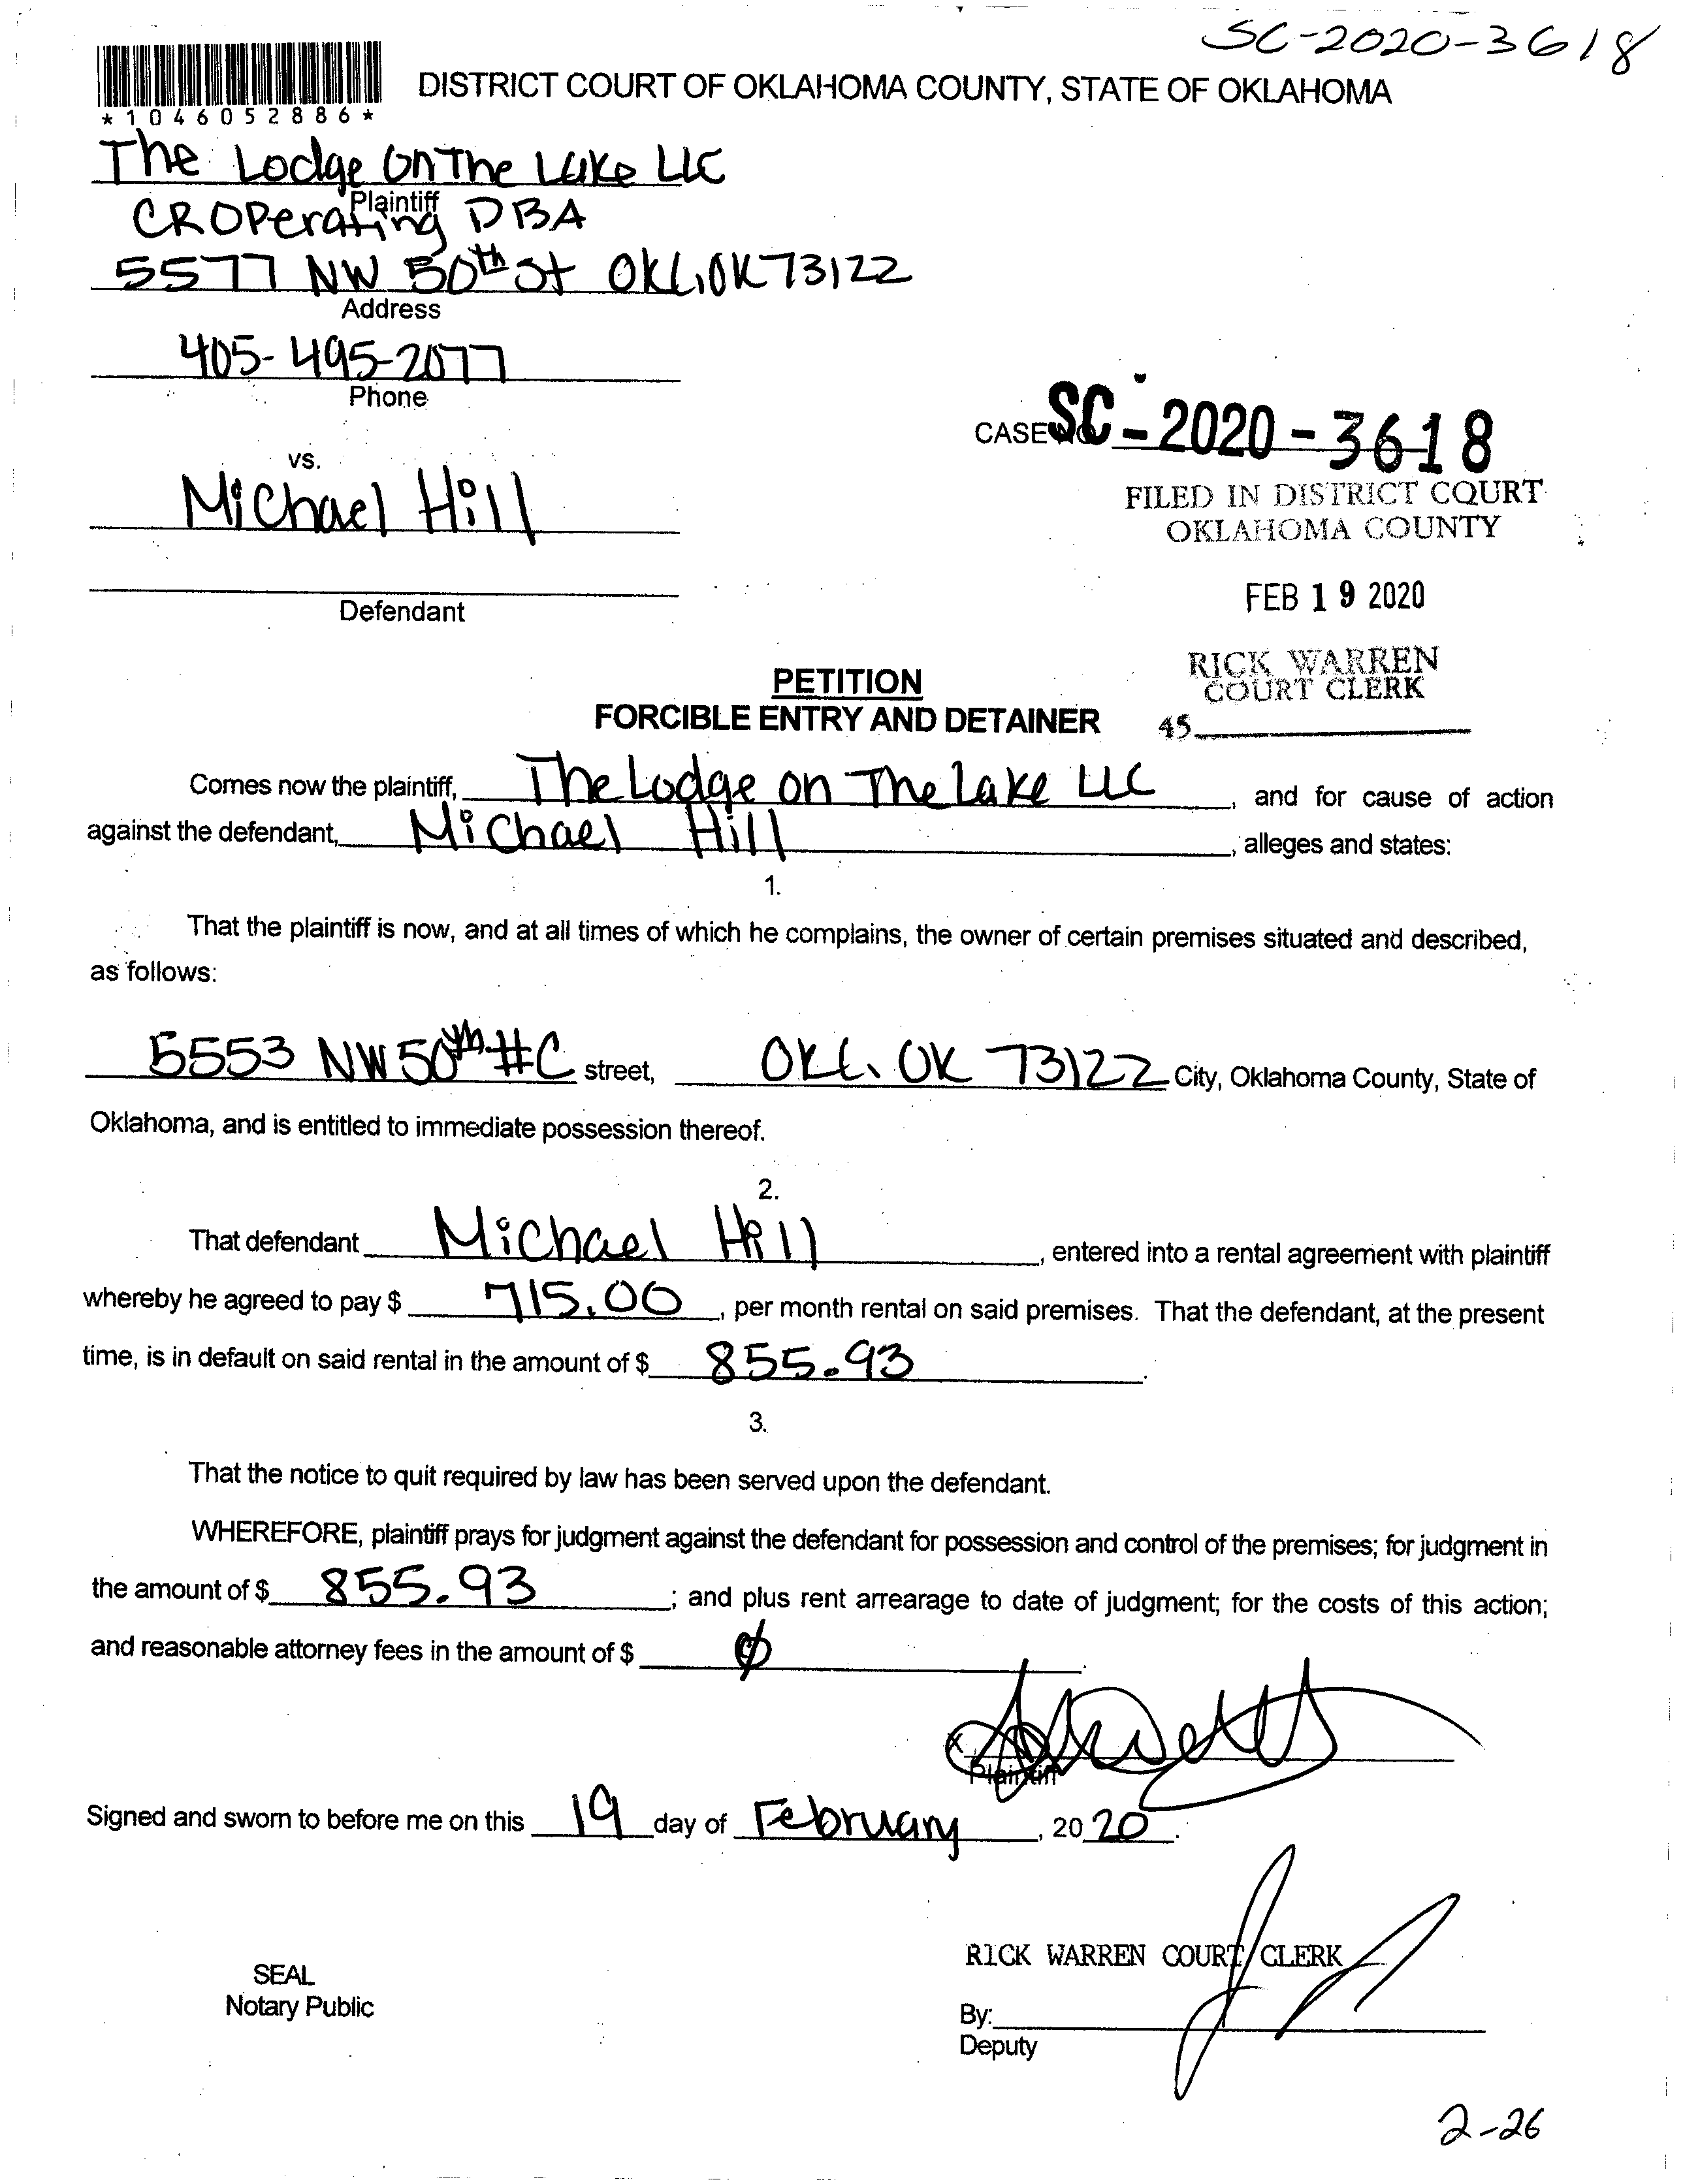 SC-2020-3618
*1046052886*
DISTRICT COURT OF OKLAHOMA COUNTY, STATE OF OKLAHOMA
The Lodge On The Lake LLC
Plaintiff
CROPerating DBA
5577 NW 50th St OKC, OK 73122
Address
405-495-2077
Phone
CASE NO. SC-2020-3618
vs.
Michael Hill
FILED IN DISTRICT COURT
OKLAHOMA COUNTY
FEB 19 2020
Defendant
RICK WARREN
COURT CLERK
45
PETITION
FORCIBLE ENTRY AND DETAINER
Comes now the plaintiff, The Lodge on The Lake LLC, and for cause of action
against the defendant, Michael Hill, alleges and states:
1.
That the plaintiff is now, and at all times of which he complains, the owner of certain premises situated and described,
as follows:
5553 NW 50th #C street, OKC, OK 73122 City, Oklahoma County, State of
Oklahoma, and is entitled to immediate possession thereof.
2.
That defendant Michael Hill, entered into a rental agreement with plaintiff
whereby he agreed to pay $ 715.00, per month rental on said premises. That the defendant, at the present
time, is in default on said rental in the amount of $ 855.93.
3.
That the notice to quit required by law has been served upon the defendant.
WHEREFORE, plaintiff prays for judgment against the defendant for possession and control of the premises; for judgment in
the amount of $ 855.93; and plus rent arrearage to date of judgment; for the costs of this action;
and reasonable attorney fees in the amount of $ ∅.
X
Plaintiff
Signed and sworn to before me on this 19 day of February, 2020.
RICK WARREN COURT CLERK
SEAL
Notary Public
By:
Deputy
2-26